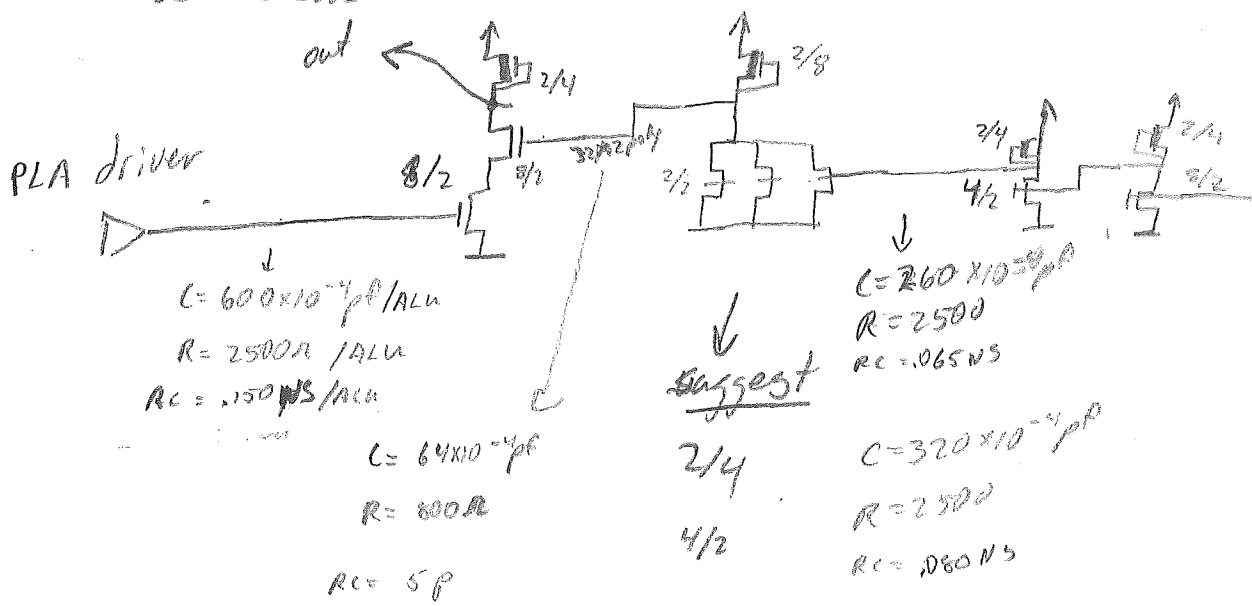 out
2/4
2/8
PLA driver
8/2
8/2
32/2 poly
2/2
2/4
4/2
2/4
8/2
C = 600x10⁻⁴pf/ALU
R = 2500Ω /ALU
RC = .150NS/ALU
C = 260x10⁻⁴pf
R = 2500
RC = .065NS
suggest
2/4
4/2
C = 64x10⁻⁴pf
R = 800Ω
RC = 5p
C = 320x10⁻⁴pf
R = 2500
RC = .080NS